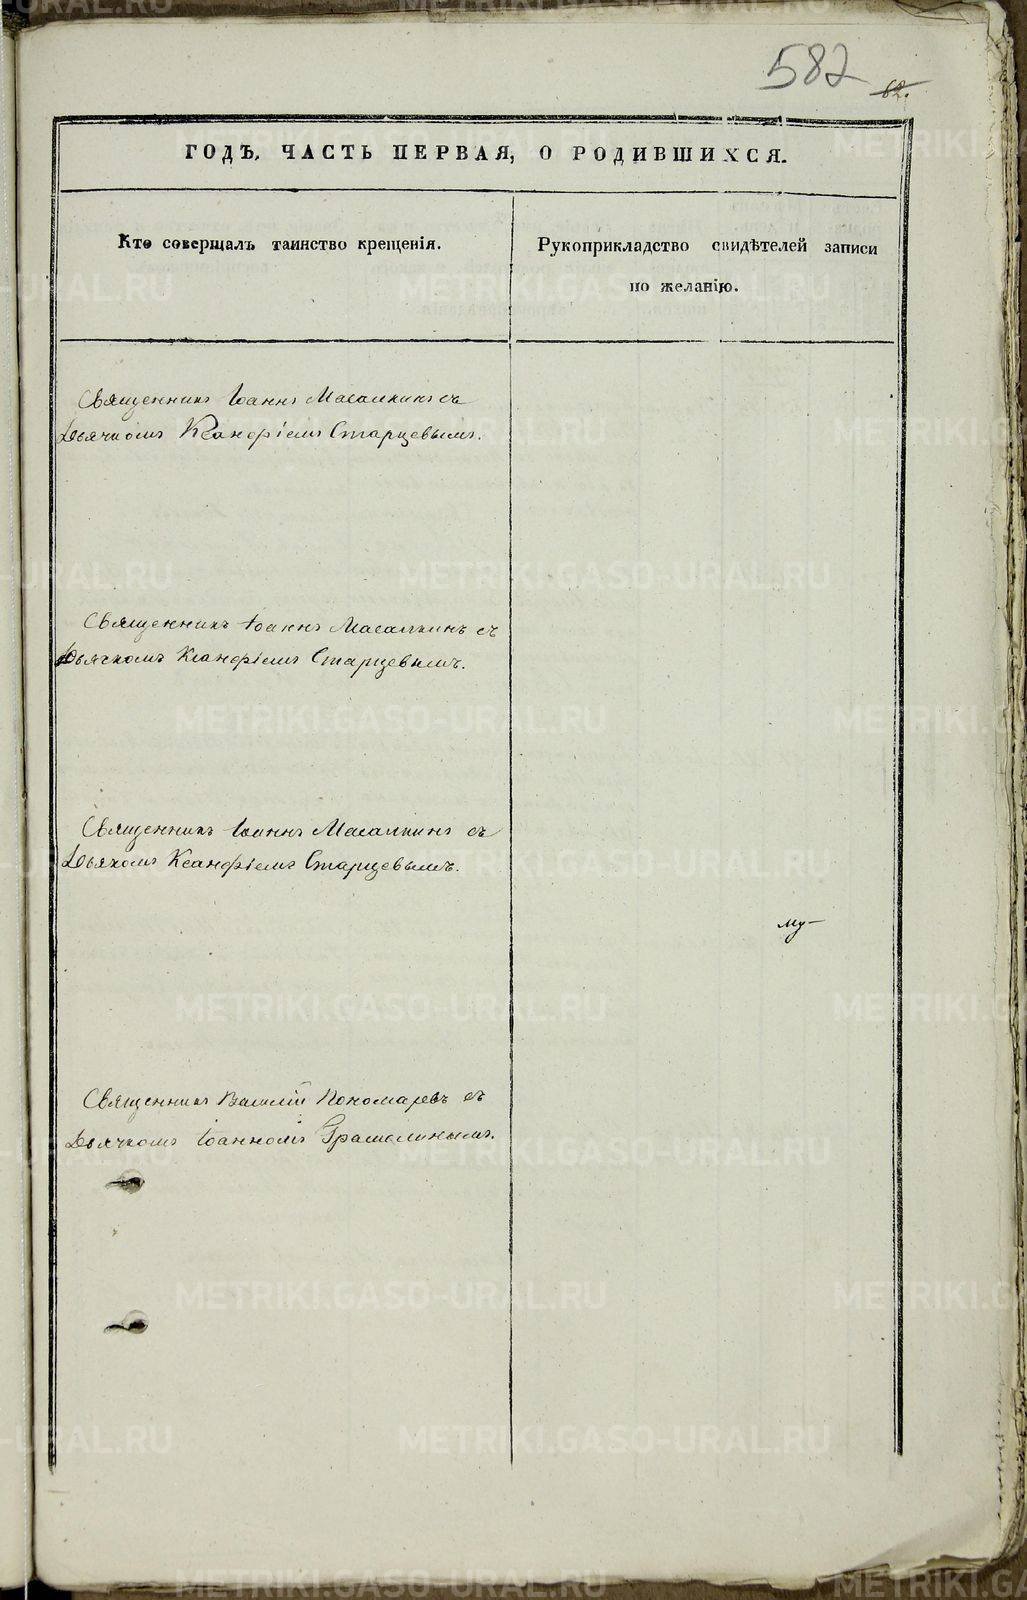 582
62.
ГОДЪ, ЧАСТЬ ПЕРВАЯ, О РОДИВШИХСЯ.
Кто совершалъ таинство крещенія.
Рукоприкладство свидѣтелей записи
по желанію.
Священникъ Іоаннъ Масалкинъ съ
Дьячкомъ Ксанфіемъ Старцевымъ.
Священникъ Іоаннъ Масалкинъ съ
Дьячкомъ Ксанфіемъ Старцевымъ.
Священникъ Іоаннъ Масалкинъ съ
Дьячкомъ Ксанфіемъ Старцевымъ.
му-
Священникъ Василій Пономаревъ съ
Дьячкомъ Іоанномъ Грамолинымъ.
METRIKI.GASO-URAL.RU